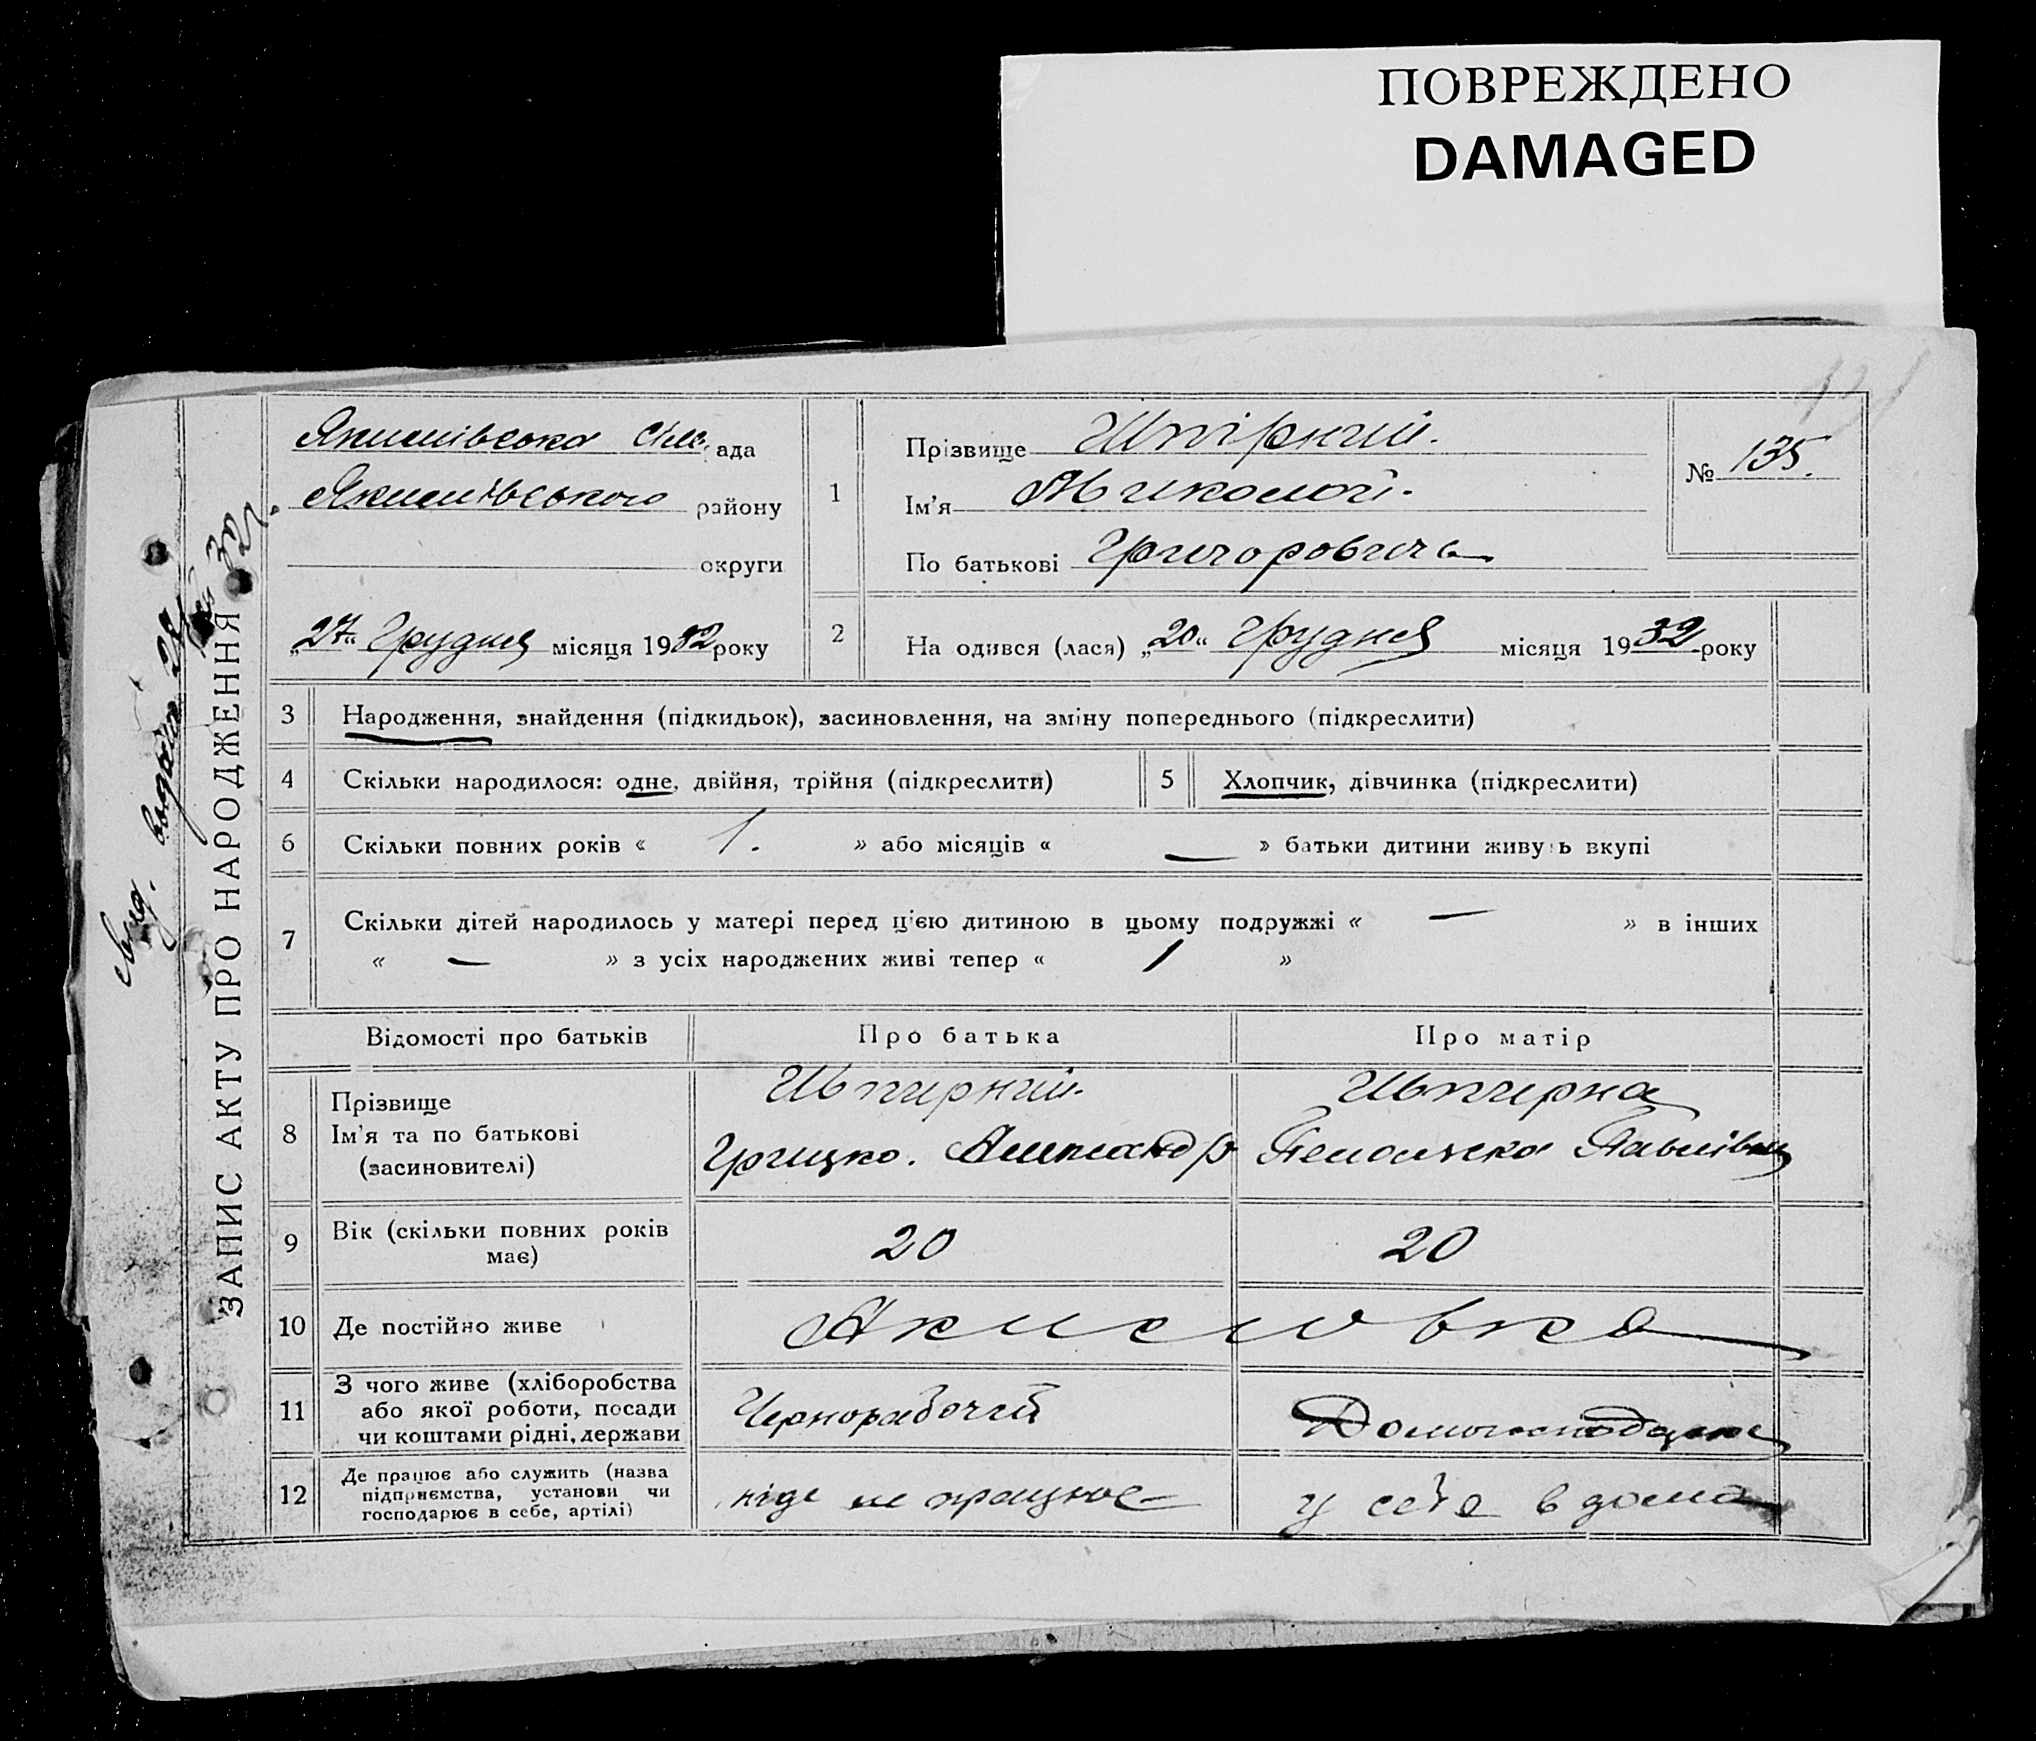 ПОВРЕЖДЕНО
DAMAGED
Якимівська Сіль. ада
Якимівського району
округи
„27“ Грудня місяця 1932 року
1
Прізвище Шпірний.
Ім'я Миколай.
По батькові Григоровича
№ 135.
2
На одився (лася) „20“ Грудня місяця 1932 року
ЗАПИС АКТУ ПРО НАРОДЖЕННЯ
3 Народження, знайдення (підкидьок), засиновлення, на зміну попереднього (підкреслити)
4 Скільки народилося: одне, двійня, трійня (підкреслити)
5 Хлопчик, дівчинка (підкреслити)
6 Скільки повних років « 1. » або місяців « — » батьки дитини живу ь вкупі
7 Скільки дітей народилось у матері перед ц'єю дитиною в цьому подружжі « — » в інших
« — » з усіх народжених живі тепер « 1 »
Відомості про батьків Про батька Про матір
8 Прізвище
Ім'я та по батькові
(засиновителі)
Шпирний.
Грицко. Александр
Шпирна
Пелагѣя Павлівна
9 Вік (скільки повних років
має)
20 20
10 Де постійно живе Акимовка
11 З чого живе (хліборобства
або якої роботи, посади
чи коштами рідні, держави
Чернорабочій
Домогосподарка
12 Де працює або служить (назва
підприємства, установи чи
господарює в себе, артілі)
ніде не працює
у себе в дома